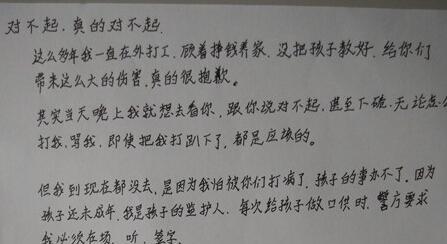 对不起，真的对不起.
这么多年我一直在外打工，顾着挣钱养家，没把孩子教好，给你们
带来这么大的伤害，真的很抱歉。
其实当天晚上我就想去看你，跟你说对不起，甚至下跪，无论怎么
打我，骂我，即使把我打趴下了，都是应该的。
但我到现在都没去，是因为我怕被你们打病了，孩子的事办不了，因为
孩子还未成年，我是孩子的监护人，每次给孩子做口供时，警方要求
我必须在场，听，签字.